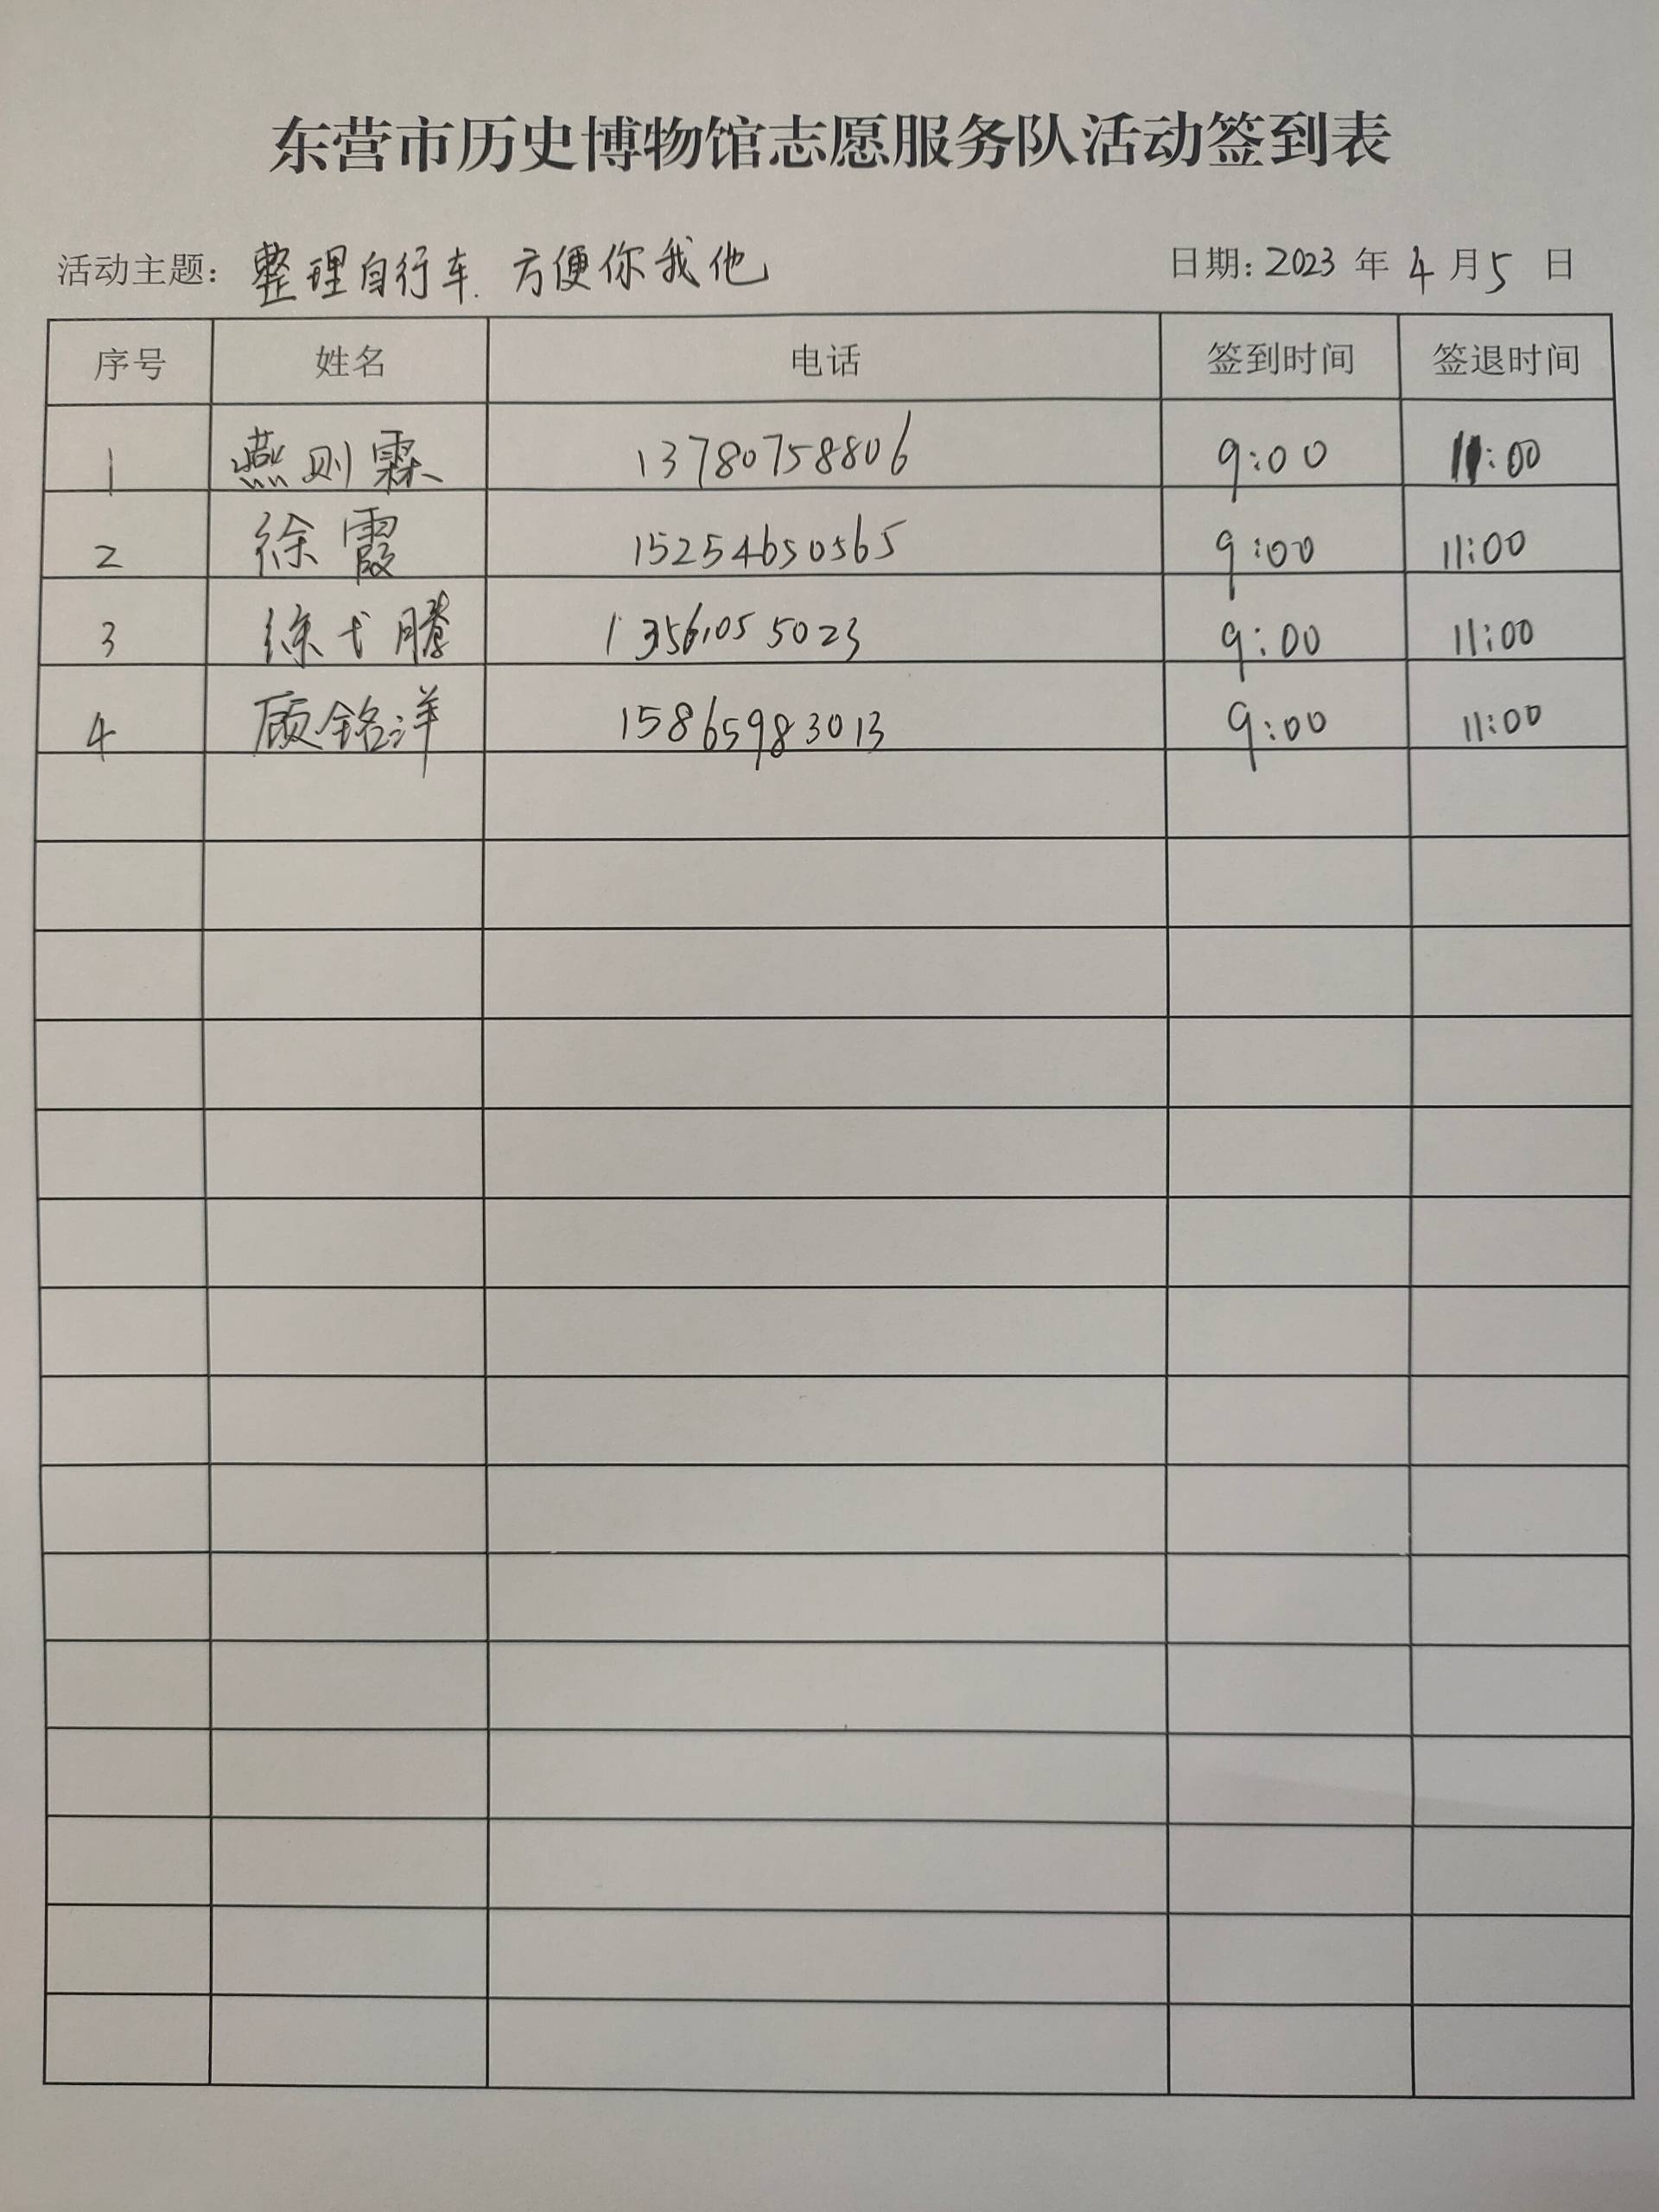 东营市历史博物馆志愿服务队活动签到表
活动主题: 整理自行车 方便你我他 日期: 2023 年 4 月 5 日
序号 姓名 电话 签到时间 签退时间
1 燕则霖 13780758806 9:00 11:00
2 徐霞 15254650565 9:00 11:00
3 徐弋腾 13561055023 9:00 11:00
4 顾铭洋 15865983013 9:00 11:00